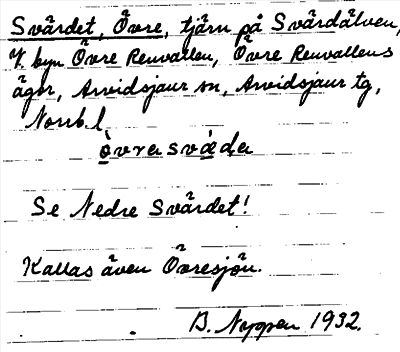 Svärdet, Övre, tjärn på Svärdälven,
V. byn Övre Renvallen, Övre Renvallens
ägor, Arvidsjaur sn, Arvidsjaur tg,
Norrb. l.
òvrasvǽda
Se Nedre Svärdet!
Kallas även Övresjön.
B. Nyppen 1932.